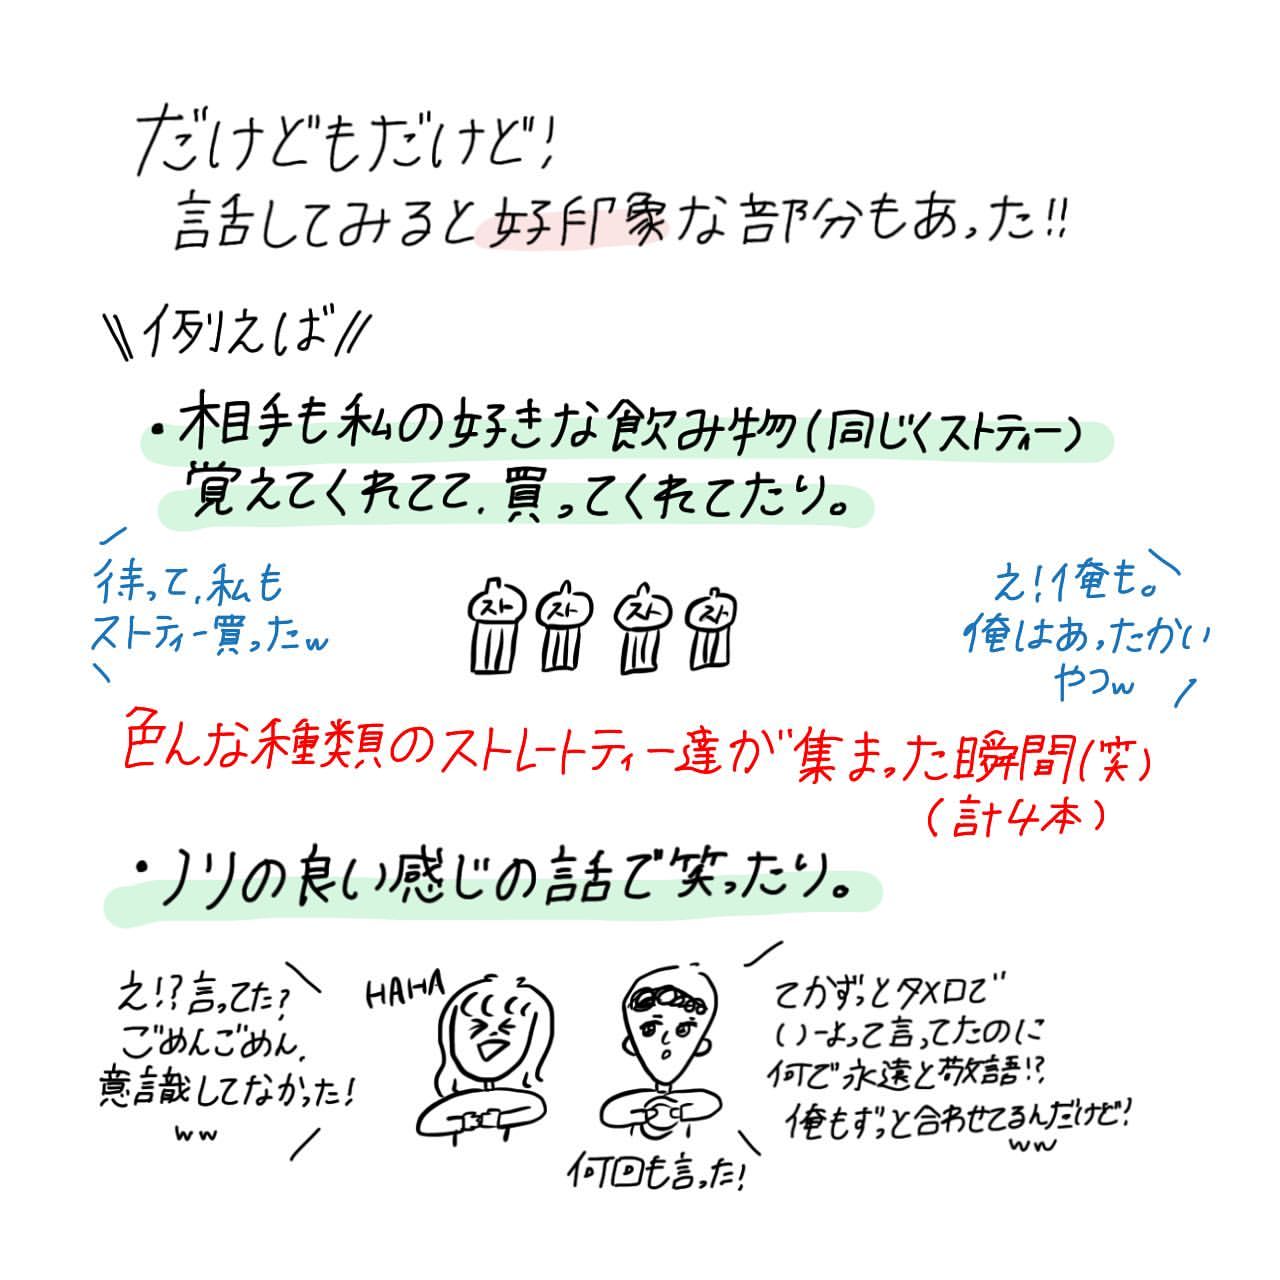 だけどもだけど!
話してみると好印象な部分もあった!!
\\例えば//
・相手も私の好きな飲み物(同じくストティー)
覚えてくれてて、買ってくれてたり。
待って、私も
ストティー買ったw
スト スト スト スト
え!俺も。
俺はあったかい
やつw
色んな種類のストレートティー達が集まった瞬間(笑)
(計4本)
・ノリの良い感じの話で笑ったり。
え!?言ってた?
ごめんごめん、
意識してなかった!
ww
HAHA
てかずっとタメ口で
いーよって言ってたのに
何で永遠と敬語!?
俺もずっと合わせてるんだけど!
ww
何回も言った!